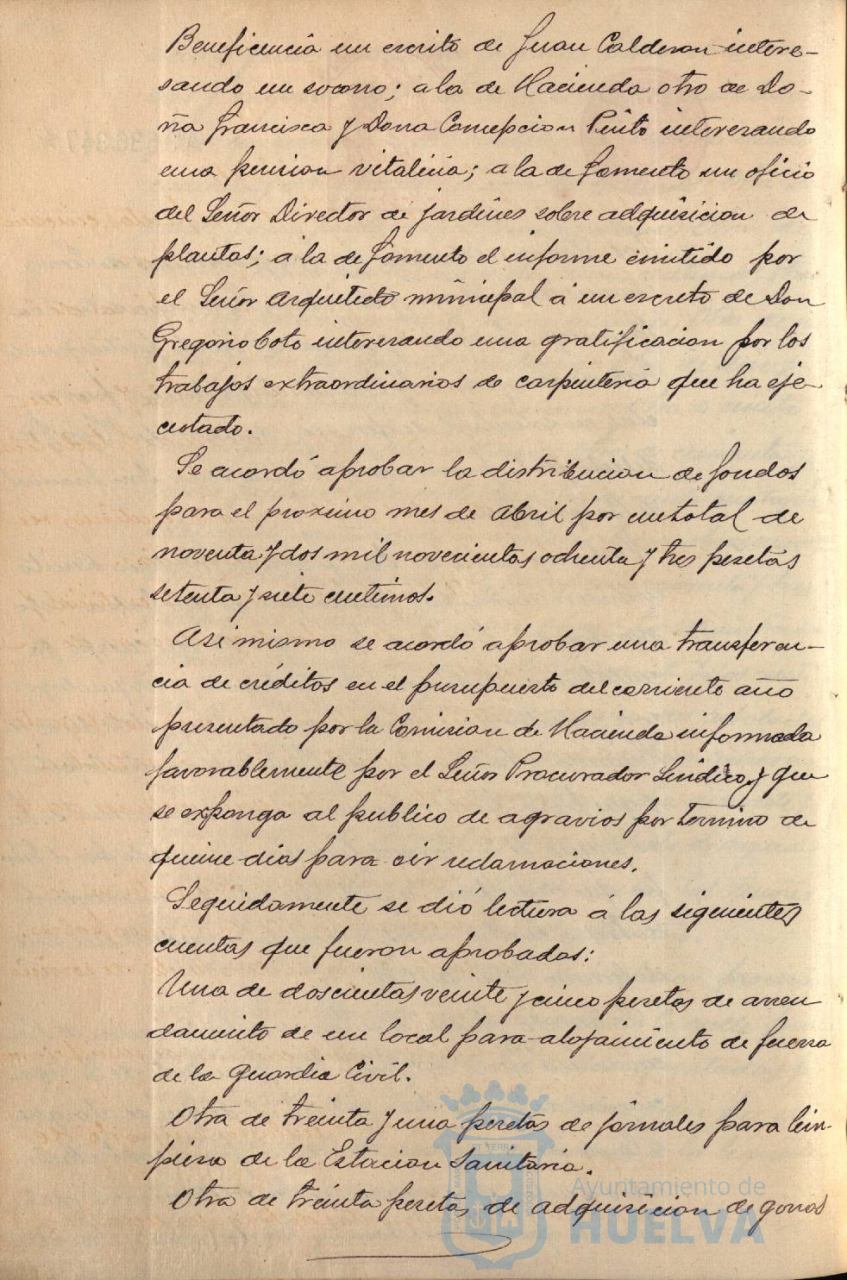 Beneficencia un escrito de Juan Calderon intere-
sando un socorro; a la de Hacienda otro de Do-
ña Francisca y Dona Concepcion Pinto interesando
una pension vitalicia; a la de fomento un oficio
del Señor Director de jardines sobre adquisicion de
plantas; á la de fomento el informe emitido por
el Señor Arquitecto municipal á un escrito de Don
Gregorio Coto interesando una gratificacion por los
trabajos extraordinarios de carpinteria que ha eje-
cutado.
Se acordó aprobar la distribucion de fondos
para el proximo mes de Abril por un total de
noventa y dos mil novecientas ochenta y tres pesetas
setenta y siete centimos.
Asi mismo se acordó aprobar una transferen-
cia de créditos en el presupuesto del corriente año
presentado por la Comision de Hacienda informada
favorablemente por el Señor Procurador Sindico, y que
se exponga al publico de agravios por termino de
quince dias para oir reclamaciones.
Seguidamente se dió lectura á las siguientes
cuentas que fueron aprobadas:
Una de doscientas veinte y cinco pesetas de arren
damiento de un local para alojamiento de fuerza
de la Guardia Civil.
Otra de treinta y una pesetas de jornales para lim-
pieza de la Estacion Sanitaria.
Otra de treinta pesetas de adquisicion de gorras
Ayuntamiento de
HUELVA